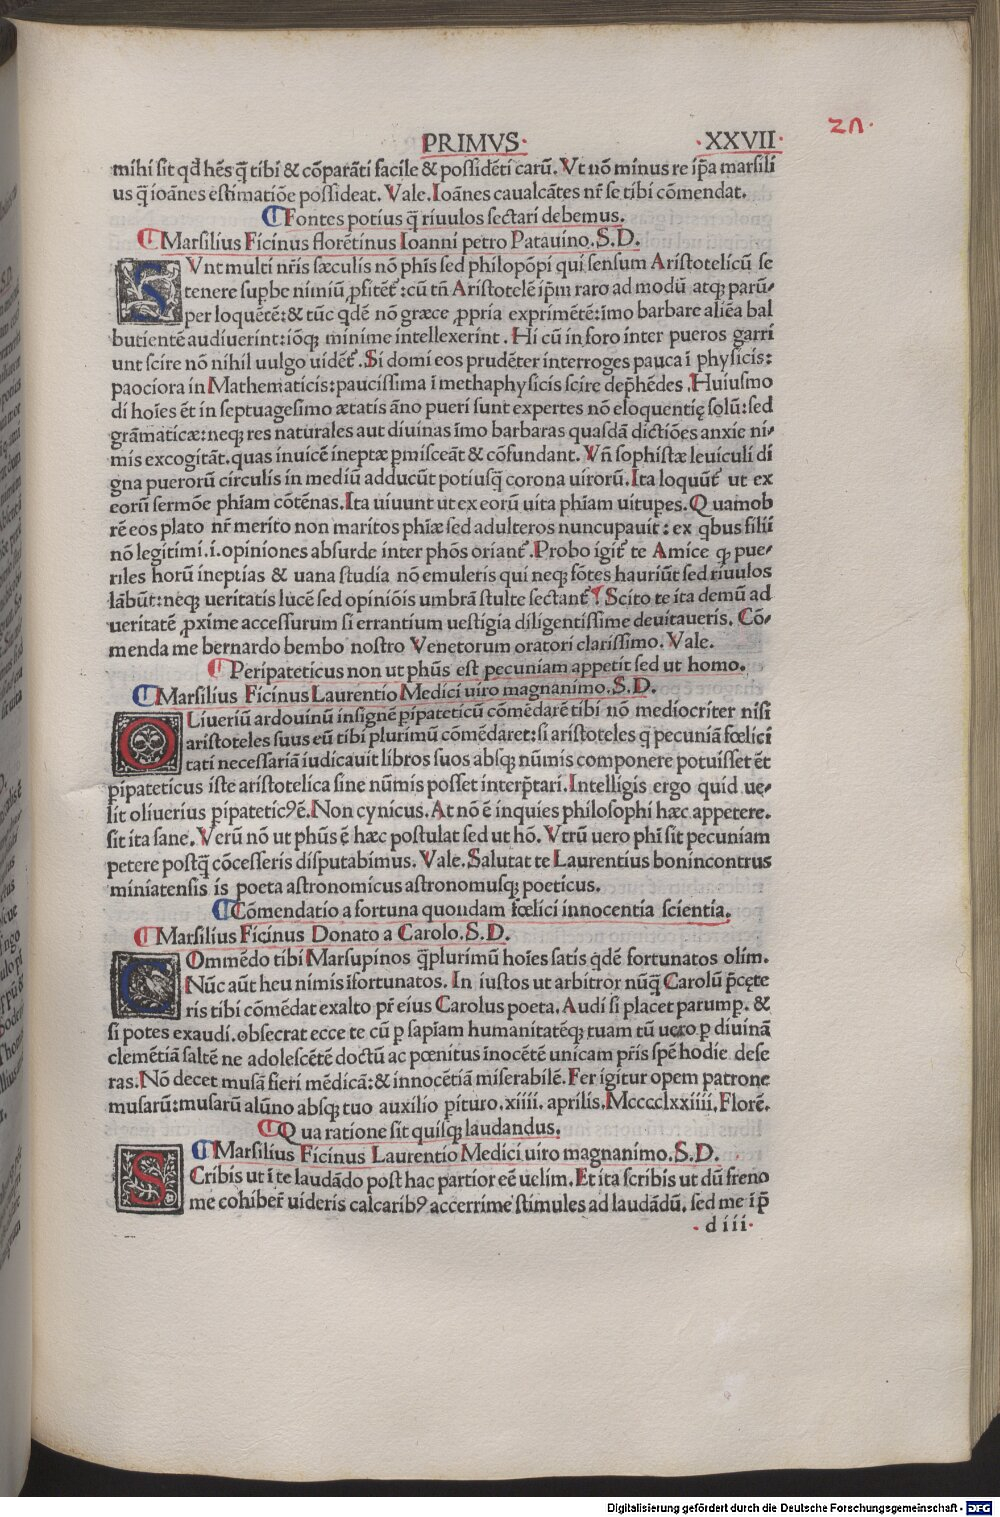 PRIMVS· ·XXVII· 27·
mihi sit qđ hēs q̄ tibi & cōparāti facile & possidēti carū. Vt nō minus re ip̄a marsili
us q̄ ioānes estimatiōe possideat. Vale. Ioānes caualcātes nr̄ se tibi cōmendat.
¶Fontes potius q̄ riuulos sectari debemus.
¶Marsilius Ficinus florētinus Ioanni petro Patauino.S.D.
SVnt multi nr̄is sæculis nō phīs sed philopōpi qui sensum Aristotelicū se
tenere supbe nimiū ꝓfitēt̄:cū tn̄ Aristotelē ip̄m raro ad modū atq; parū-
per loquētē:& tūc qdē nō græce ꝓpria exprimētē:imo barbare aliēa bal
butientē audiuerint:iōq; minime intellexerint. Hi cū in foro inter pueros garri
unt scire nō nihil uulgo uidēt̄. Si domi eos prudēter interroges pauca ī physicis:
paociora in Mathematicis:paucissima ī methaphysicis scire dep̄hēdes. Huiusmo
di hoīes ēt in septuagesimo ætatis āno pueri sunt expertes nō eloquentię solū:sed
grāmaticæ:neq; res naturales aut diuinas īmo barbaras quasdā dictiōes anxie ni-
mis excogitāt.quas inuicē ineptæ pmisceāt & cōfundant. Vn̄ sophistæ leuiculi di
gna puerorū circulis in mediū adducūt potiusq̄ corona uirorū. Ita loquūt̄ ut ex
eorū sermōe phīam cōtēnas. Ita uiuunt ut ex eorū uita phīam uitupes. Quamob
rē eos plato nr̄ merito non maritos phīæ sed adulteros nuncupauit: ex qbus filii
nō legitimi.i.opiniones absurde inter phōs oriant̄. Probo igit̄ te Amice q; pue-
riles horū ineptias & uana studia nō emuleris qui neq; fōtes hauriūt sed riuulos
lābūt:neq; ueritatis lucē sed opiniōis umbrā stulte sectant̄! Scito te ita demū ad
ueritatē ꝓxime accessurum si errantium uestigia diligentissime deuitaueris. Cō-
menda me bernardo bembo nostro Venetorum oratori clarissimo. Vale.
¶Peripateticus non ut phūs est pecuniam appetit sed ut homo.
¶Marsilius Ficinus Laurentio Medici uiro magnanimo.S.D.
OLiueriū ardouinū insignē pipateticū cōmēdarē tibi nō mediocriter nisi
aristoteles suus eū tibi plurimū cōmēdaret:si aristoteles q̄ pecuniā fœlici
tati necessariā iudicauit libros suos absq; nūmis componere potuisset ēt
pipateticus iste aristotelica sine nūmis posset interp̄tari. Intelligis ergo quid ue-
lit oliuerius pipateticꝰ ē. Non cynicus. At nō ē inquies philosophi hæc appetere.
sit ita sane. Verū nō ut phūs ē hæc postulat sed ut hō. Vtrū uero phī sit pecuniam
petere postq̄ cōcesseris disputabimus. Vale. Salutat te Laurentius bonincontrus
miniatensis is poeta astronomicus astronomusq; poeticus.
¶Cōmendatio a fortuna quondam fœlici innocentia scientia.
¶Marsilius Ficinus Donato a Carolo.S.D.
COmmēdo tibi Marsupinos q̄plurimū hoīes satis qdē fortunatos olim.
Nūc aūt heu nimis īfortunatos. In iustos ut arbitror nūq̄ Carolū p̄cęte
ris tibi cōmēdat exalto pr̄ eius Carolus poeta. Audi si placet parump. &
si potes exaudi.obsecrat ecce te cū p sapīam humanitatēq; tuam tū uero p diuinā
clemētiā saltē ne adolescētē doctū ac pœnitus īnocētē unicam pr̄is spē hodie dese
ras. Nō decet musā fieri mēdicā:& innocētiā miserabilē. Fer igitur opem patrone
musarū:musarū alūno absq; tuo auxilio pituro. xiiii. aprilis. MccccLxxiiii. Florē.
¶Qua ratione sit quisq; laudandus.
¶Marsilius Ficinus Laurentio Medici uiro magnanimo.S.D.
SCribis ut ī te laudādo post hac partior eē uelim. Et ita scribis ut dū freno
me cohiber̄ uideris calcaribꝰ accerrime stimules ad laudādū. sed me ip̄
·d iii·
Digitalisierung gefördert durch die Deutsche Forschungsgemeinschaft - DFG